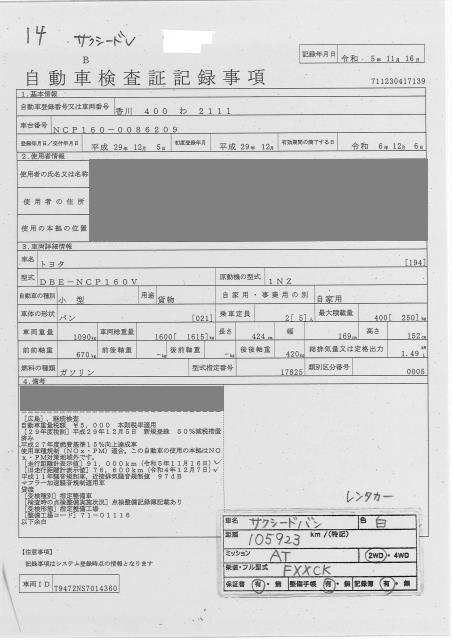 14 サクシードV
B
記録年月日 令和 5年11月16日
自動車検査証記録事項
711230417139
1.基本情報
自動車登録番号又は車両番号 香川 400 わ 2111
車台番号 NCP160-0086209
登録年月日/交付年月日 平成 29年 12月 5日 初度登録年月 平成 29年 12月 有効期間の満了する日 令和 6年 12月 6日
2.使用者情報
使用者の氏名又は名称
使用者の住所
使用の本拠の位置
3.車両詳細情報
車名 トヨタ [194]
型式 DBE-NCP160V 原動機の型式 1NZ
自動車の種別 小型 用途 貨物 自家用・事業用の別 自家用
車体の形状 バン [021] 乗車定員 2[ 5]人 最大積載量 400[ 250]kg
車両重量 1090kg 車両総重量 1600[ 1615]kg 長さ 424cm 幅 169cm 高さ 152cm
前前軸重 670kg 前後軸重 -kg 後前軸重 -kg 後後軸重 420kg 総排気量又は定格出力 1.49 kW L
燃料の種類 ガソリン 型式指定番号 17825 類別区分番号 0005
4.備考
[広島],継続検査
自動車重量税額 ¥5,000 本則税率適用
[29年度税制]平成29年12月5日 新規登録 50%減税措置
済み
平成27年度燃費基準15%向上達成車
使用車種規制(NOx・PM)適合,この自動車の使用の本拠はNO
x・PM対策地域外です。
[走行距離計表示値]91,000km(令和5年11月16日)✓
[旧走行距離計表示値]76,600km(令和4年12月7日)✓
平成11年騒音規制車,近接排気騒音規制値 97dB
マフラー加速騒音規制適用車
貸渡
[受検種別]指定整備車
[検査時の点検整備実施状況]点検整備記録簿記載あり
[受検形態]指定整備工場
[整備工場コード]71-01116
以下余白
レンタカー
車名 サクシードバン 色 白
距離 105923 km/(特記)
ミッション AT 2WD・4WD
架装・フル型式 FXXCK
保証書 有・無 整備手帳 有・無 記録簿 有・無
【注意事項】
記録事項はシステム登録時点の情報となります
車両ID T9472NS7014360